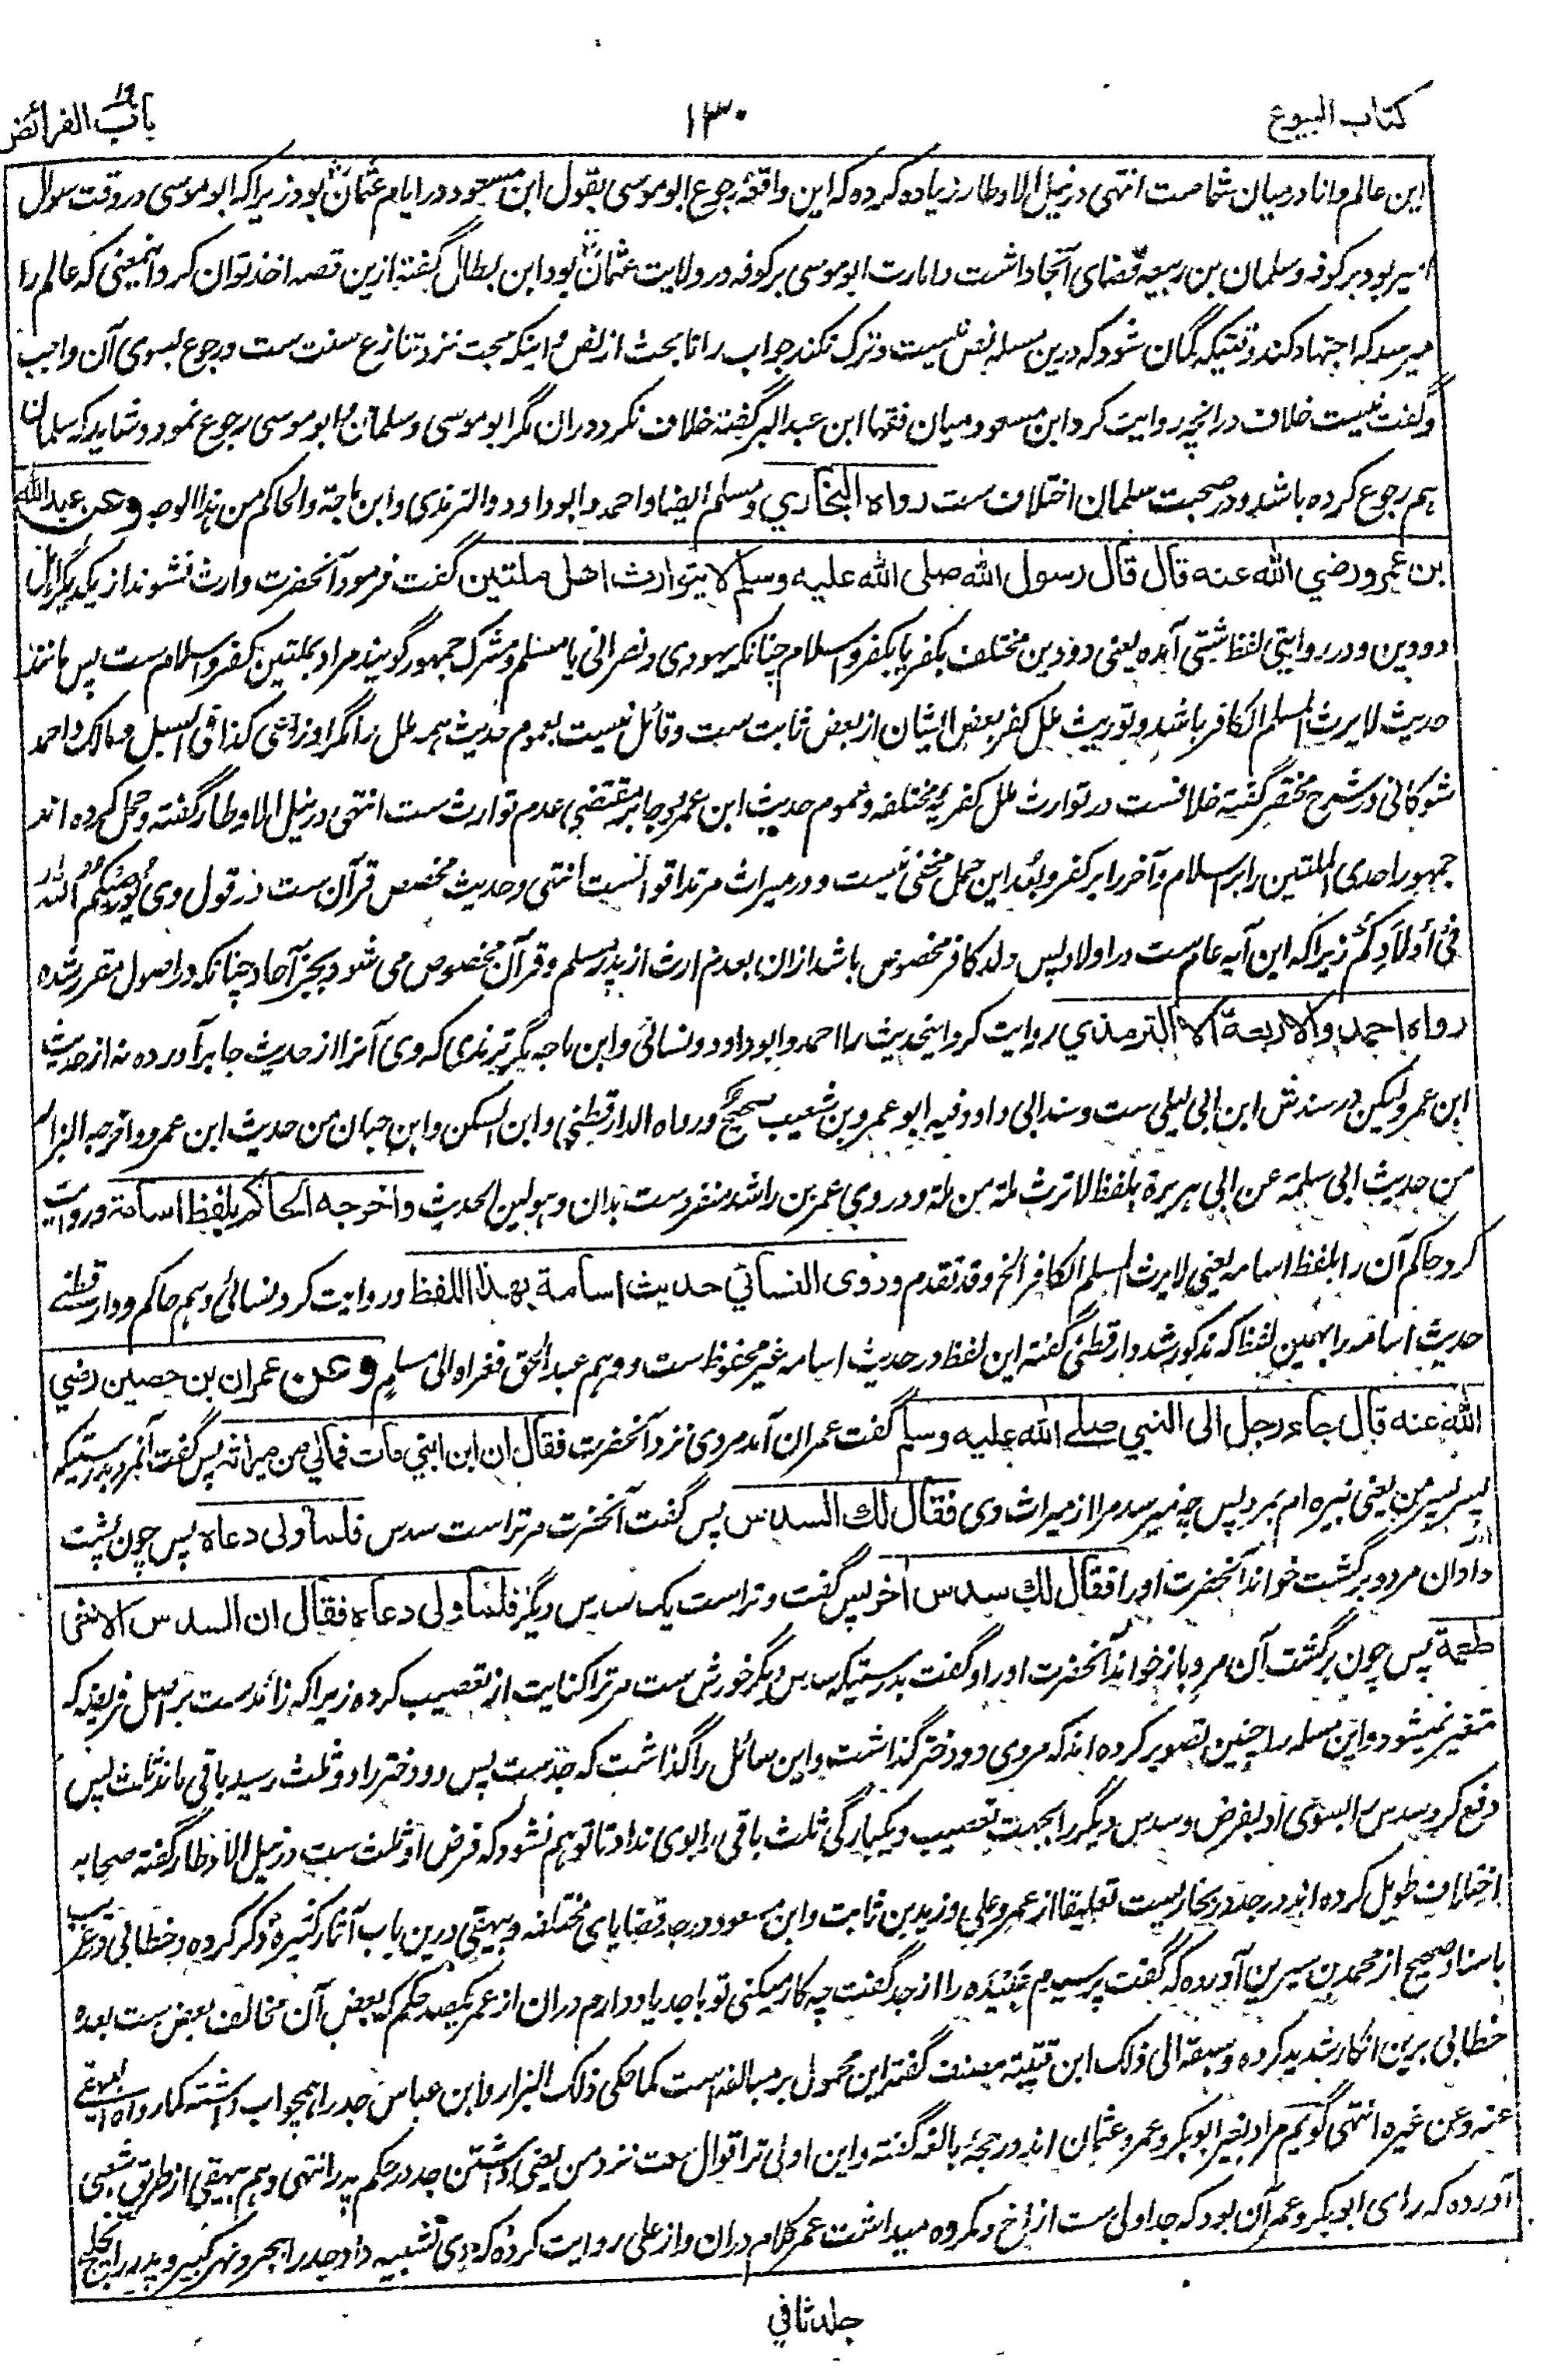 کتاب البیوع
۱۳۰
باب الفرائض
این عالم دانا درمیان شماست انتهی در نیل الاوطار زیاده کرده که این واقعهٔ رجوع ابو موسی بقول ابن مسعود در ایام عثمان بود زیرا که ابو موسی در وقت سوال
امیر بود بر کوفه و سلمان بن ربیعه قضای آنجا داشت و امارت ابو موسی بر کوفه در ولایت عثمان بود ابن بطال گفته ازین قصه اخذ توان کرد اینمعنی که عالم را
میرسد که اجتهاد کند وقتیکه گمان شود که درین مسله نص نیست و ترک نکند جواب را تا بحث از نص و اینکه حجت نزد تنازع سنت ست و رجوع بسوی آن واجب
و گفت نیست خلاف در انچه روایت کرد ابن مسعود میان فقها ابن عبد البر گفته خلاف نکرد دران مگر ابو موسی و سلمان و ابو موسی رجوع نمود و شاید که سلمان
هم رجوع کرده باشد و در صحبت سلمان اختلاف ست رواه البخاري و مسلم ایضا و احمد و ابو داود و الترمذی و ابن ماجة و الحاکم من هذا الوجه وعن عبد الله
بن عمرو رضي الله عنه قال قال رسول الله صلى الله عليه وسلم لا يتوارث اهل ملتين گفت فرمود آنحضرت وارث نشوند از یکدیگر اهل
دو دین و در روایتی لفظ شتی آمده یعنی دو دین مختلف بکفر یا بکفر و اسلام چنانکه یهودی و نصرانی یا مسلم و مشرک جمهور گویند مراد بملتین کفر و اسلام ست پس مانند
حدیث لا یرث المسلم الکافر باشد و توریث ملل کفر بعض ایشان از بعض ثابت ست و قائل نیست بعموم حدیث همه ملل را مگر اوزاعی کذا فی السبل و مالک و احمد
شوکانی در شرح مختصر گفته خلافست در توارث ملل کفریهٔ مختلفه و عموم حدیث ابن عمر و جابر مقتضی عدم توارث ست انتهی در نیل الاوطار گفته و حمل کرده اند
جمهور احدی الملتین را بر اسلام و آخر را بر کفر و بُعد این حمل مخفی نیست و در میراث مرتد اقوالست انتهی و حدیث مخصص قرآن ست در قول وی یُوصِیکُمُ اللهُ
فِی أَوْلَادِکُمْ زیرا که این آیه عام ست در اولاد پس ولد کافر مخصوص باشد ازان بعدم ارث از پدر مسلم و قرآن مخصوص می شود بخبر آحاد چنانکه در اصول مقرر شده
رواه احمد والاربعة الا الترمذي روایت کرد اینحدیث را احمد و ابو داود و نسائی و ابن ماجه مگر ترمذی که وی آنرا از حدیث جابر آورده نه از حدیث
ابن عمر و لیکن در سندش ابن ابی لیلی ست و سند ابی داود فیه ابو عمرو بن شعیب صحیح و رواه الدارقطنی و ابن السکن و ابن حبان من حدیث ابن عمرو و اخرجه البزار
من حدیث ابی سلمة عن ابی هریرة بلفظ لا ترث ملة من ملة و در وی عمر بن راشد منفردست بدان و هو لین الحدیث واخرجه الحاكم بلفظ اسامة و روایت
کرد حاکم آن را بلفظ اسامه یعنی لا یرث المسلم الکافر الخ و قد تقدم وروى النسائي حديث اسامة بهذا اللفظ و روایت کرد نسائی و هم حاکم و دارقطنے
حدیث اسامه را بهمین لفظ که مذکور شد دارقطنی گفته این لفظ در حدیث اسامه غیر محفوظ ست و وهم عبد الحق فعزاه الی مسلم وعن عمران بن حصين رضي
الله عنه قال جاء رجل الى النبي صلے الله عليه وسلم گفت عمران آمد مردی نزد آنحضرت فقال ان ابن ابني مات فمالي من ميراثه پس گفت آنمرد بدرستیکه
پسر پسر من یعنی نبیره ام بمرد پس چه میرسد مرا از میراث وی فقال لك السدس پس گفت آنحضرت مر تراست سدس فلما ولى دعاه پس چون پشت
داد آن مرد و برگشت خواند آنحضرت او را فقال لك سدس آخر پس گفت و تراست یک سدس دیگر فلما ولى دعاه فقال ان السدس الاخر
طعمة پس چون برگشت آن مرد باز خواند آنحضرت او را و گفت بدرستیکه سدس دیگر خورش ست مر ترا کنایت از تعصیب کرده زیرا که زائدست بر اصل فریضه که
متغیر نمیشود و این مسله را چنین تصویر کرده اند که مردی دو دختر گذاشت و این سائل را گذاشت که جدست پس دو دختر را دو ثلث رسید باقی ماند ثلث پس
دفع کرد سدس را بسوی او بفرض و سدس دیگر را بجهت تعصیب و یکبارگی ثلث باقی را بوی نداد تا توهم نشود که فرض او ثلث ست در نیل الاوطار گفته صحابه
اختلاف طویل کرده اند در جد در بخاریست تعلیقا از عمر و علی و زید بن ثابت و ابن مسعود در جد قضایای مختلفه و بیهقی درین باب آثار کثیره ذکر کرده و خطابی در غریب
باسناد صحیح از محمد بن سیرین آورده که گفت پرسیدم عَبِیْدَه را از جد گفت چه کار میکنی تو با جد یاد دارم دران از عمر یکصد حکم که بعض آن مخالف بعض ست بعده
خطابی برین انکار شدید کرده و سبقه الی ذلک ابن قتیبة مصنف گفته این محمول بر مبالغه است کما حکی ذلک البزار و ابن عباس جد را همچو اب داشته کما رواه البیهقے
عنه و عن غیره انتهی گویم مراد بغیر ابو بکر و عمر و عثمان اند در حجة بالغه گفته و این اولی تر اقوال ست نزد من یعنی داشتن جد در حکم پدر انتهی و هم بیهقی از طریق شعبی
آورده که رای ابو بکر و عمر آن بود که جد اولی ست از اخ و مکروه میداشت عمر کلام دران و از علی روایت کرده که وی تشبیه داد جد را ببحر و نهر کبیر و پدر را بخلیج
جلد ثاني